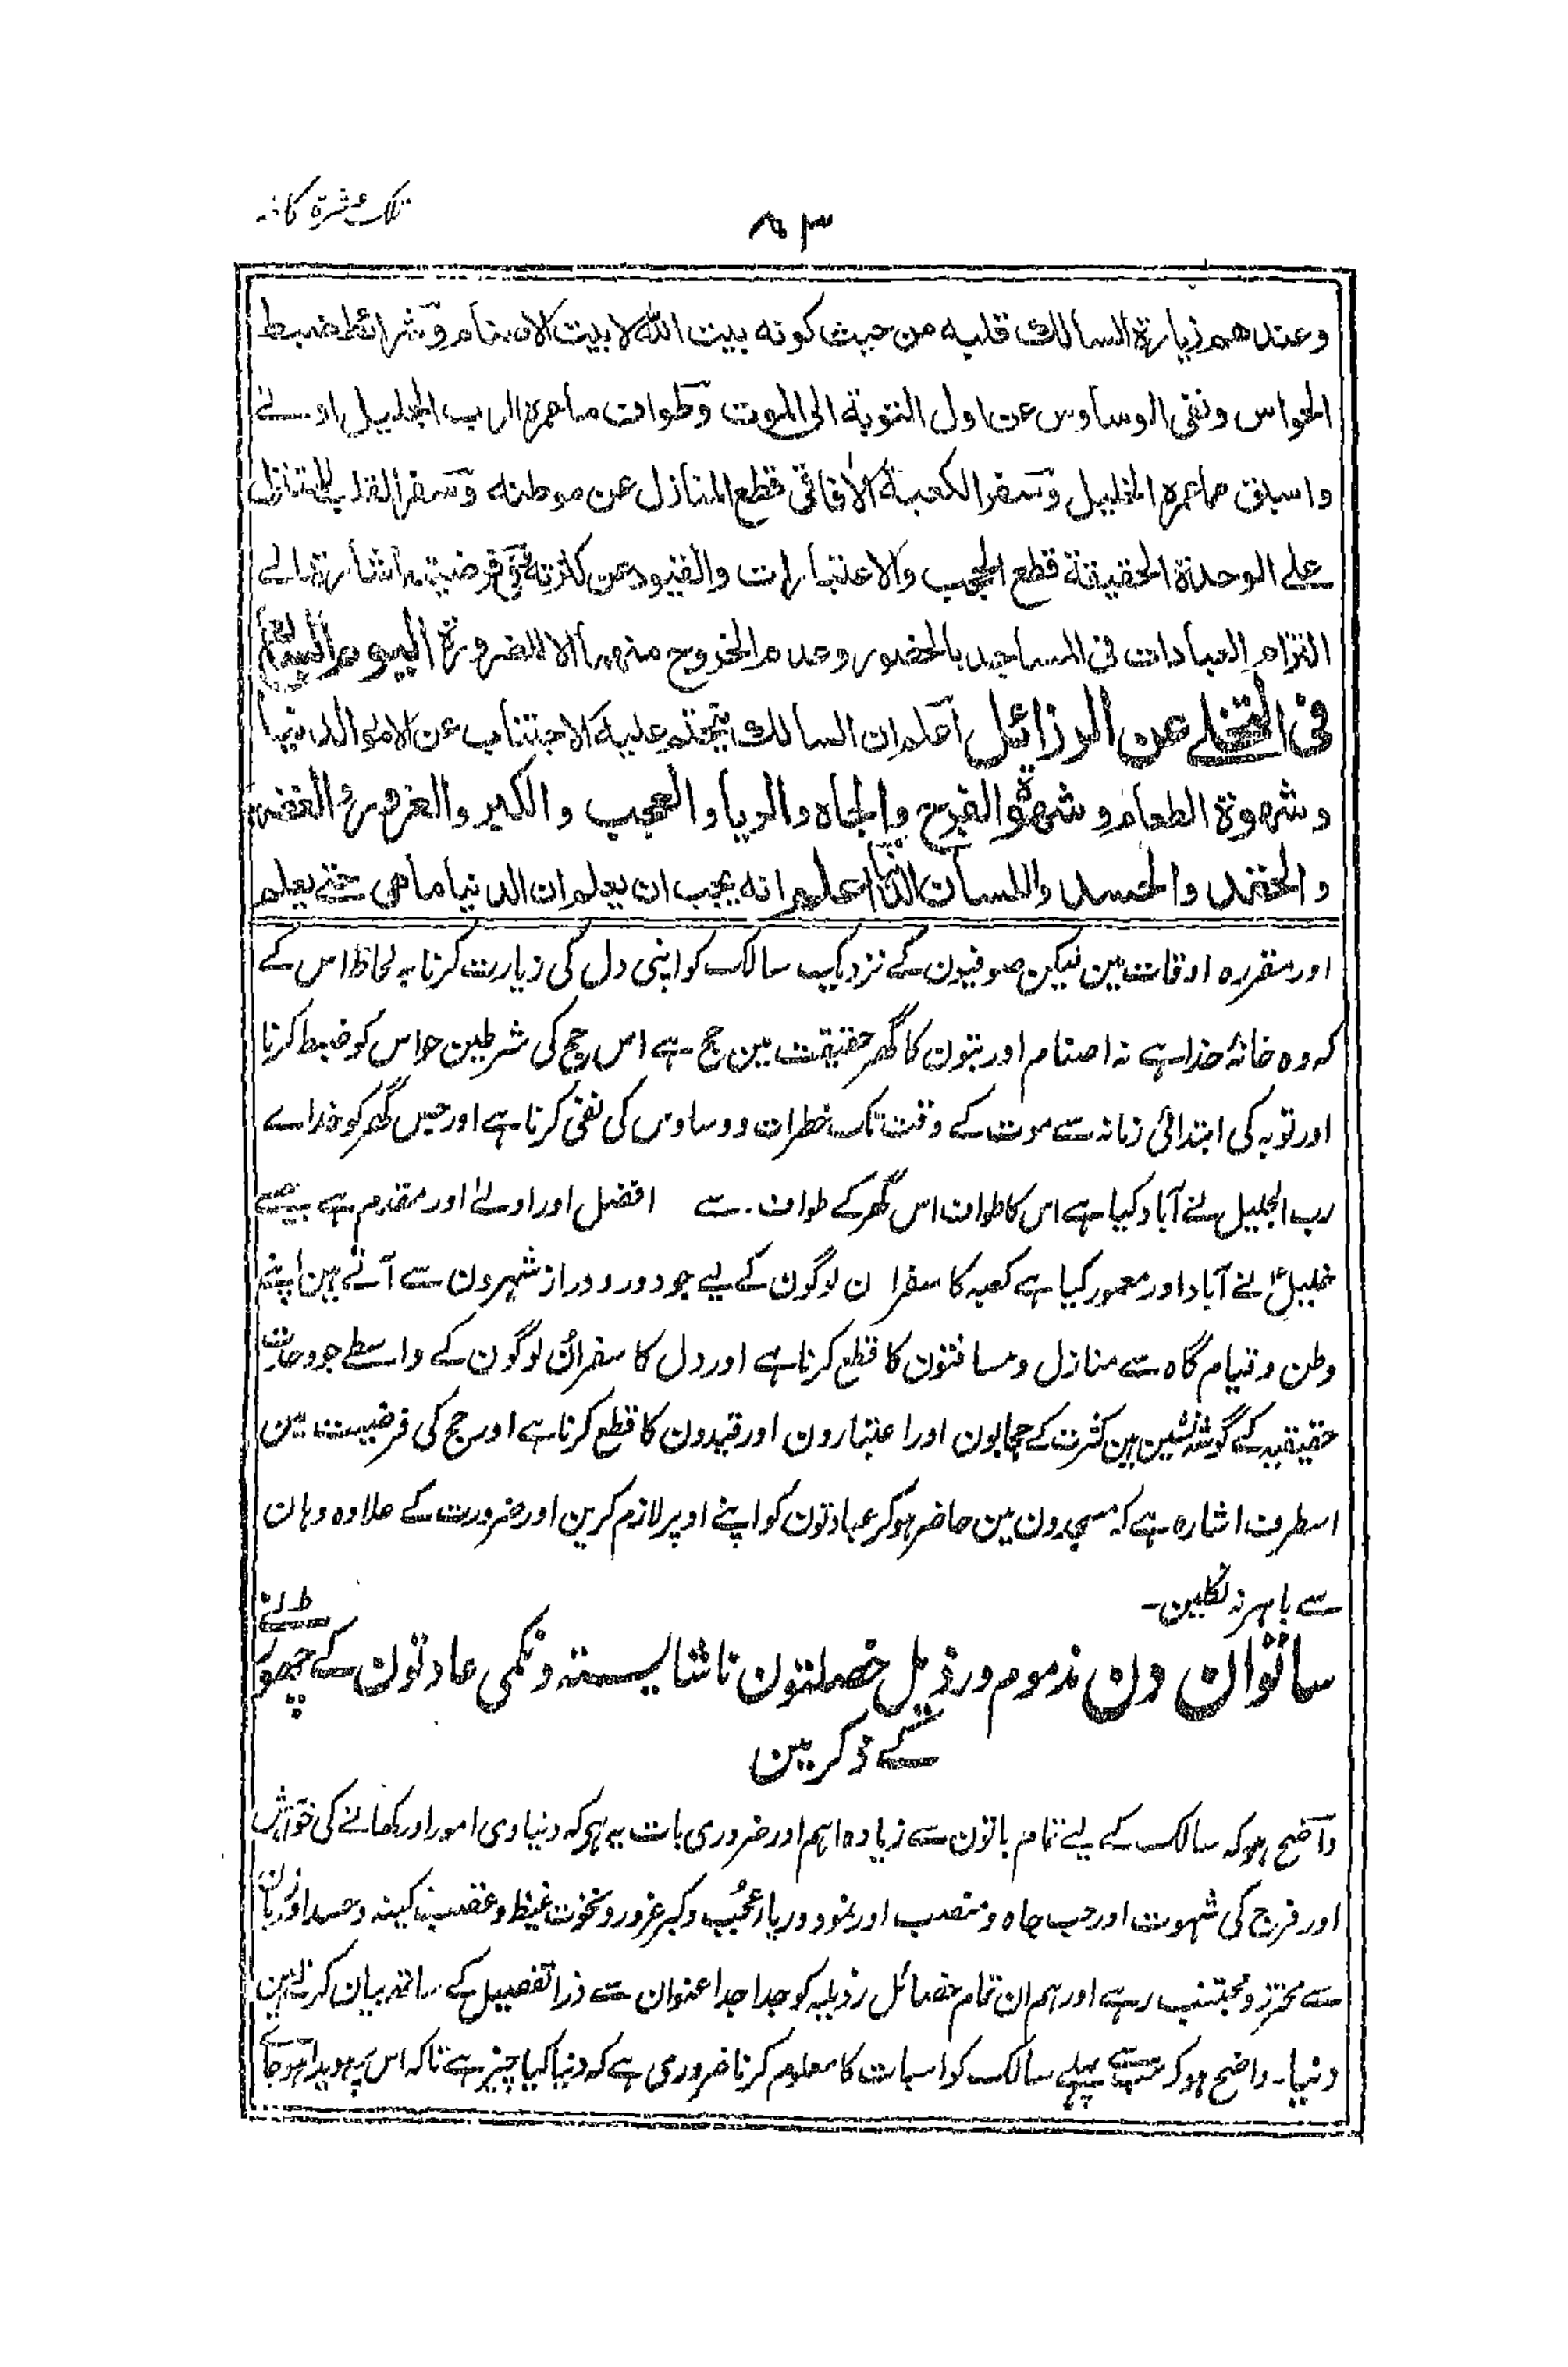 تلک عشرۃ کاملہ
۸۳
وعندهم زيارة السالك قلبه من حيث كونه بيت الله لا بيت الاصنام وشرائط ضبط
الحواس ونفى الوساوس عن اول التوبة الى الموت وطواف ما عمره الرب الجليل اولے
واسبق مما عمره الخليل وسفر الكعبة للآفاقى قطع المنازل عن موطنه وسفر القلب للمتنازل
علے الوحدة الحقيقة قطع الحجب والاعتبارات والقيود عن كثرته فرضيته اشارة الے
التزام العبادات فى المساجد بالحضور وعدم الخروج منها الا للضرورة اليوم السابع
فى التخلے عن الرذائل اعلم ان السالك يتحتم عليه الاجتناب عن الامور الدنيا
وشهوة الطعام وشهوة الفرج والجاه والريا والعجب والكبر والغرور والغضب
والحقد والحسد واللسان الدنيا اعلم انه يجب ان يعلم ان الدنيا ما هى حتے يعلم
اور مقررہ اوقات مین لیکن صوفیون کے نزدیک سالک کو اپنی دل کی زیارت کرنا بہ لحاظ اس کے
کہ وہ خانۂ خدا ہے نہ اصنام اور بتون کا گھر حقیقت مین حج ہے اس حج کی شرطین حواس کو ضبط کرنا
اور توبہ کی ابتدائی زمانہ سے موت کے وقت تک خطرات و وساوس کی نفی کرنا ہے اور جس گھر کو خداے
رب الجلیل نے آباد کیا ہے اس کا طواف اس گھر کے طواف سے افضل اور اولےٰ اور مقدم ہے جسے
خلیلؑ نے آباد اور معمور کیا ہے کعبہ کا سفر ان لوگون کے لیے جو دور و دراز شہرون سے آتے ہین اپنے
وطن و قیام گاہ سے منازل و مسافتون کا قطع کرنا ہے اور دل کا سفر اُن لوگون کے واسطے جو وحدت
حقیقیہ کے گوشہ نشین ہین کثرت کے حجابون اور اعتبارون اور قیدون کا قطع کرنا ہے اور حج کی فرضیت مین
اسطرف اشارہ ہے کہ مسجدون مین حاضر ہوکر عبادتون کو اپنے اوپر لازم کرین اور ضرورت کے علاوہ وہان
سے باہر نہ نکلین۔
ساتوان دن مذموم و رذیل خصلتون ناشایستہ و نکمی عادتون کے چھوڑنے
کے ذکر مین
واضح ہو کہ سالک کے لیے تمام باتون سے زیادہ اہم اور ضروری بات یہ ہے کہ دنیاوی امور اور کھانے کی خواہش
اور فرج کی شہوت اور حب جاہ و منصب اور نمود و ریا و عُجب و کبر غرور و نخوت غیظ و غضب کینہ و حسد اور زبان
سے محترز و مجتنب رہے اور ہم ان تمام خصائل رذیلہ کو جدا جدا عنوان سے ذرا تفصیل کے ساتھ بیان کرتے ہین
دنیا۔ واضح ہو کہ سب سے پہلے سالک کو اسبات کا معلوم کرنا ضروری ہے کہ دنیا کیا چیز ہے تاکہ اس پر ہویدا ہو جاے